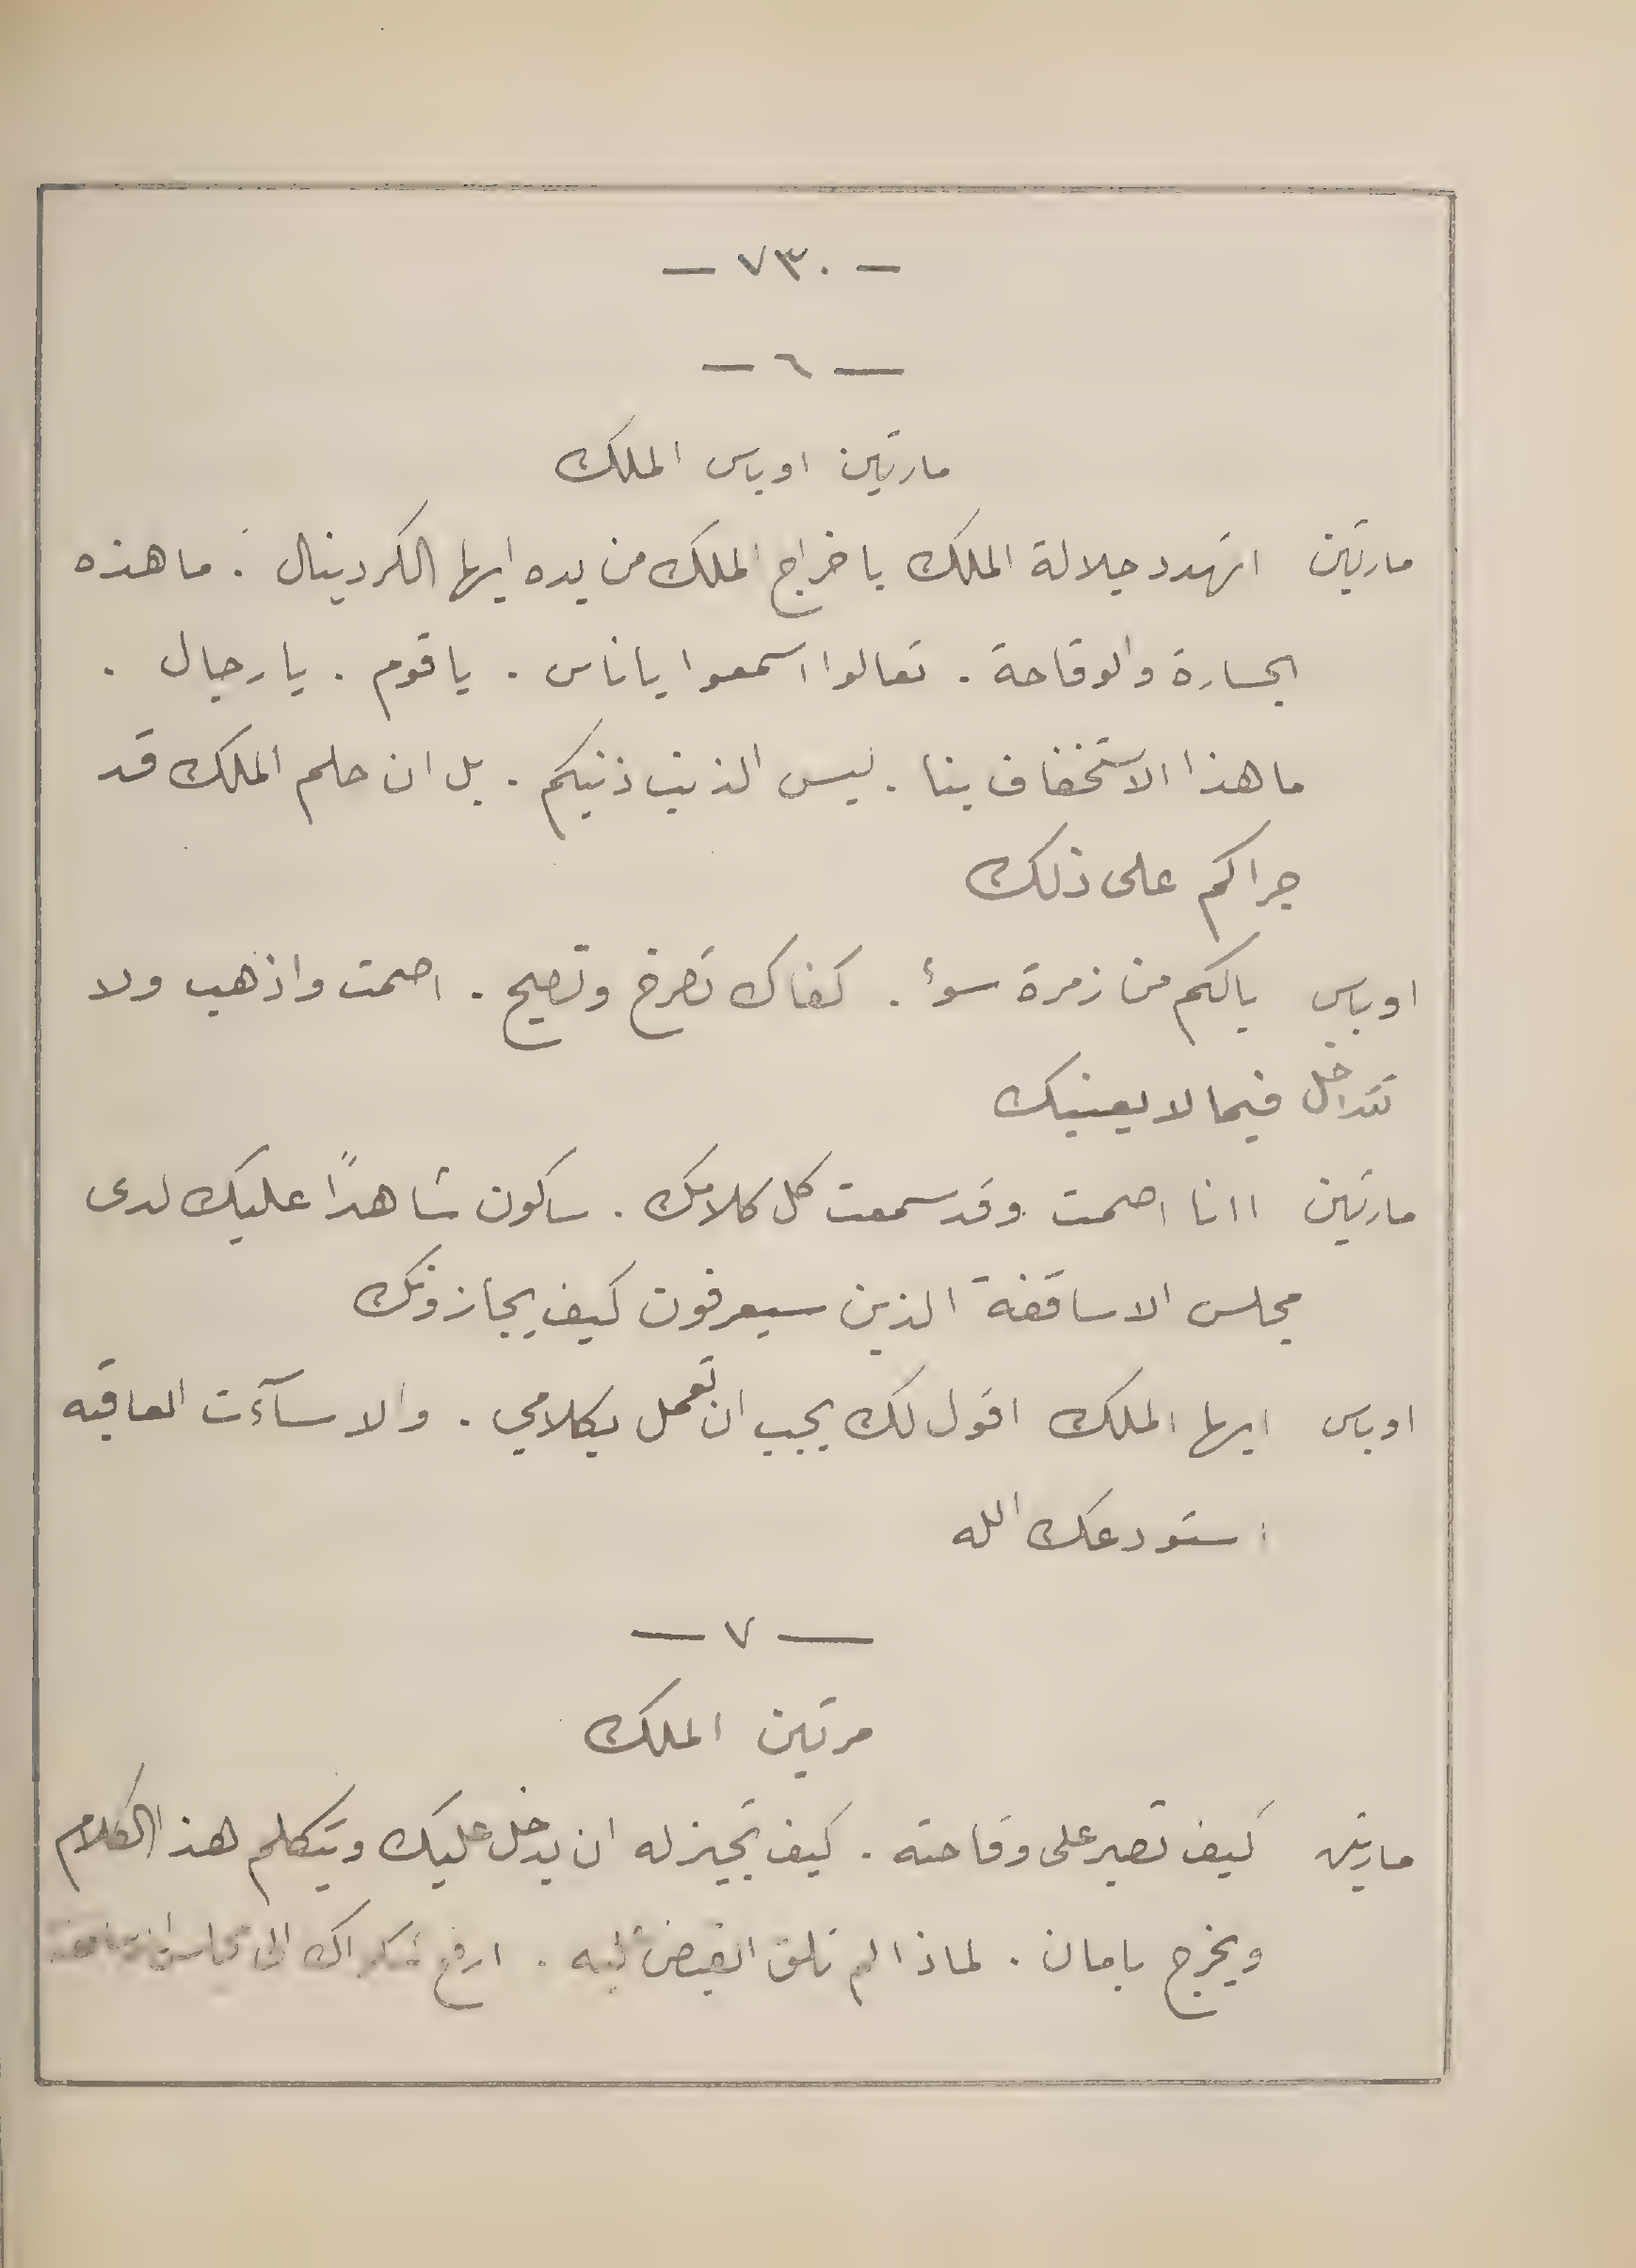 — ٧٣٠ —
— ٦ —
مارتين اوباس الملك
مارتين اتهدد جلالة الملك باخراج الملك من يده ايها الكردينال . ما هذه
الجسارة والوقاحة . تعالوا اسمعوا يا ناس . يا قوم . يا رجال .
ما هذا الاستخفاف بنا . ليس الذنب ذنبكم . بل ان حلم الملك قد
جراكم على ذلك
اوباس يالكم من زمرة سوء . كفاك تصرخ وتصيح . اصمت واذهب ولا
تتداخل فيما لا يعنيك
مارتين اانا اصمت وقد سمعت كل كلامك . ساكون شاهدًا عليك لدى
مجلس الاساقفة الذين سيعرفون كيف يجازونك
اوباس ايها الملك اقول لك يجب ان تعمل بكلامي . والا سآءت العاقبه
استودعك الله
— ٧ —
مرتين الملك
مارتين كيف تصبر على وقاحته . كيف تجيز له ان يدخل عليك ويتكلم هذا الكلام
ويخرج بامان . لماذا لم تلق القبض عليه . ارفع الى